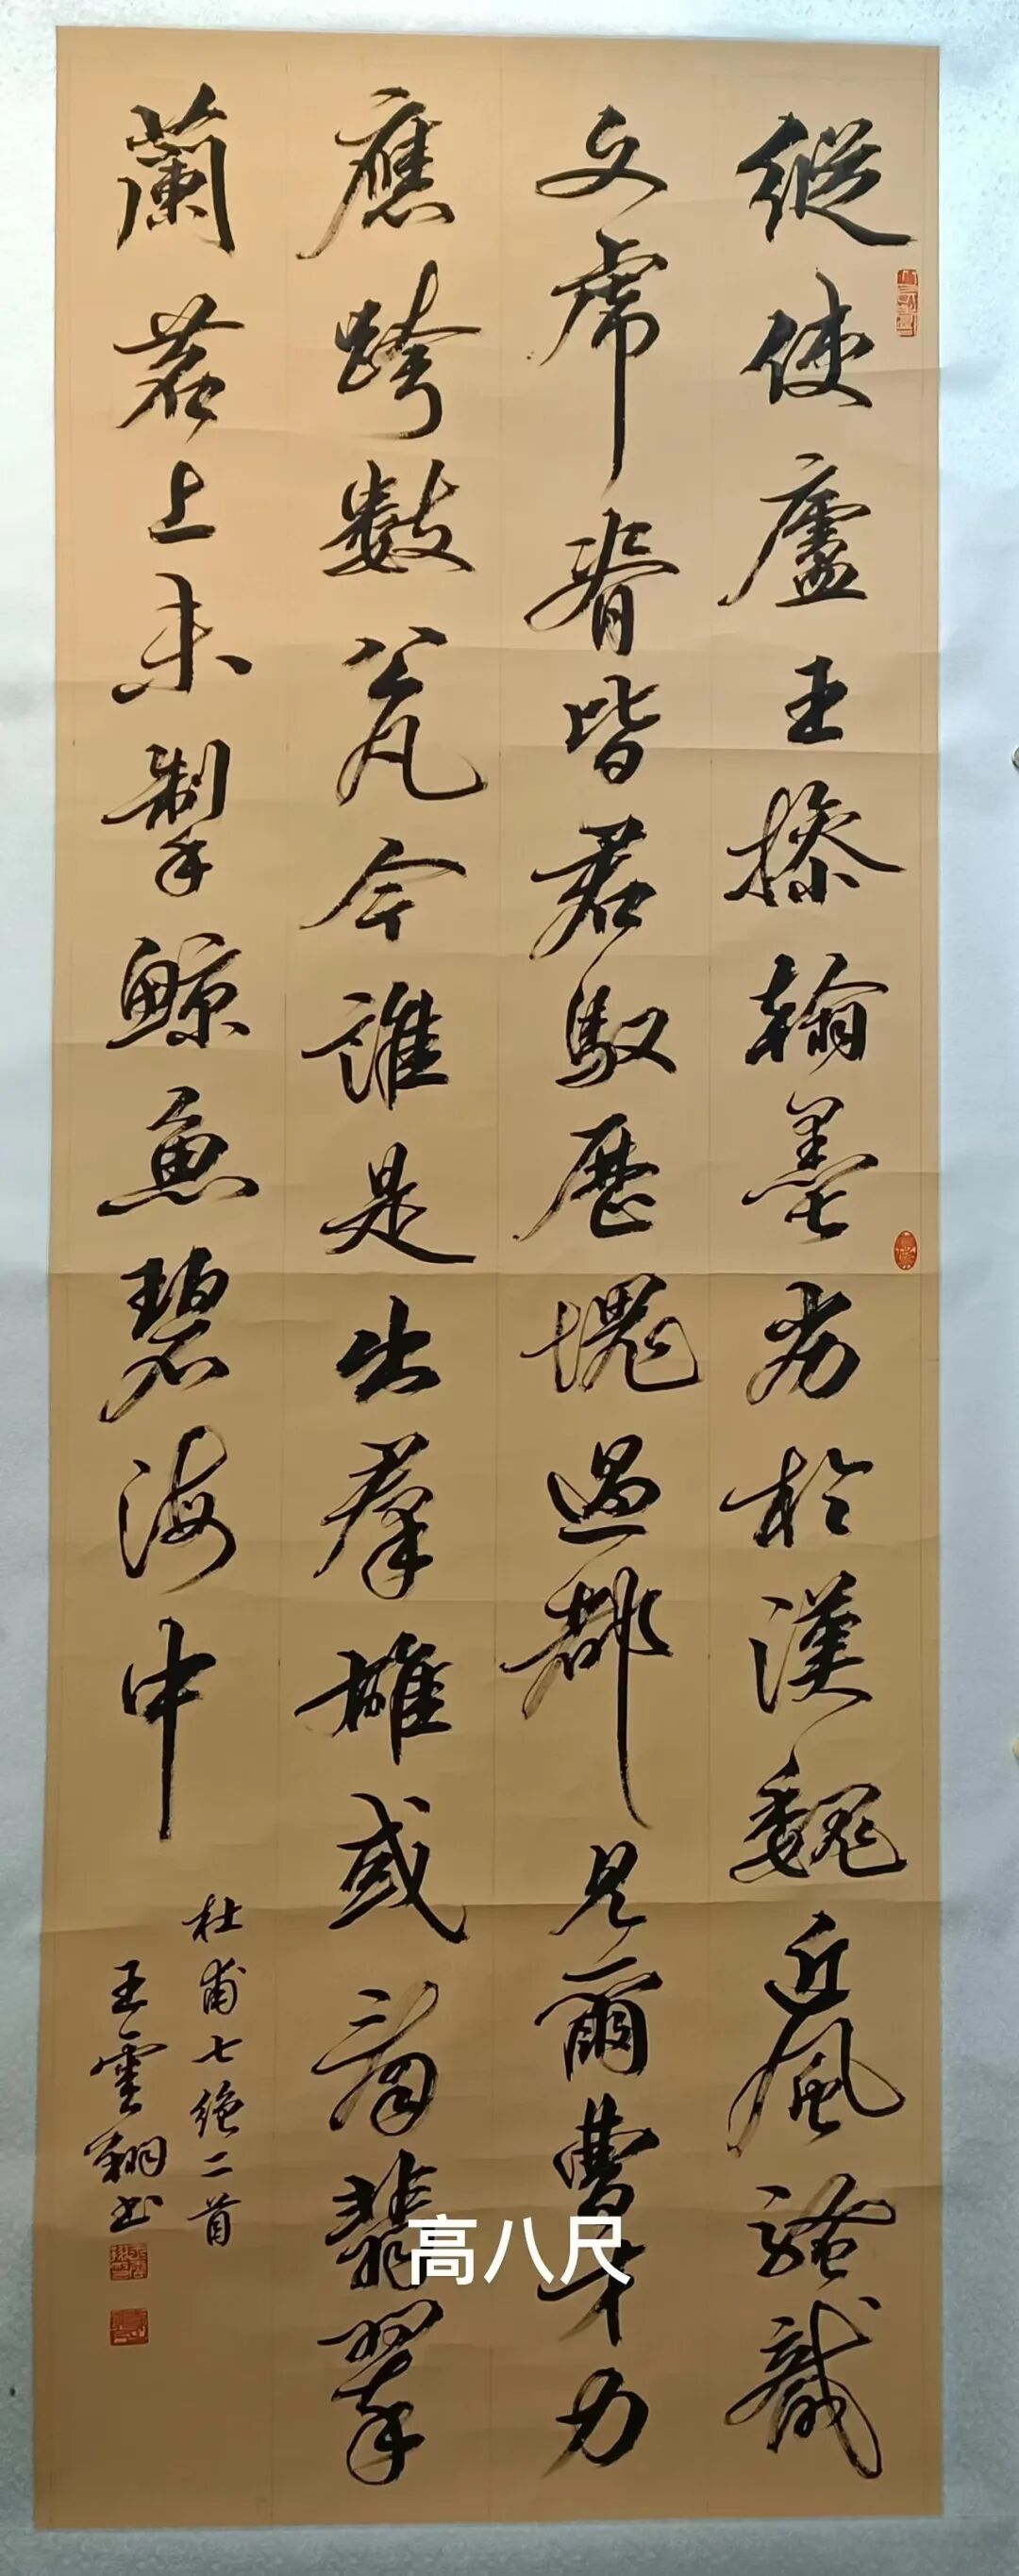 縱使盧王操翰墨劣於漢魏近風騷龍
文虎脊皆君馭歷塊過都見爾曹才力
應跨數公凡今誰是出羣雄或看翡翠
蘭苕上未掣鯨魚碧海中
杜甫七絕二首
王雲翔書
高八尺